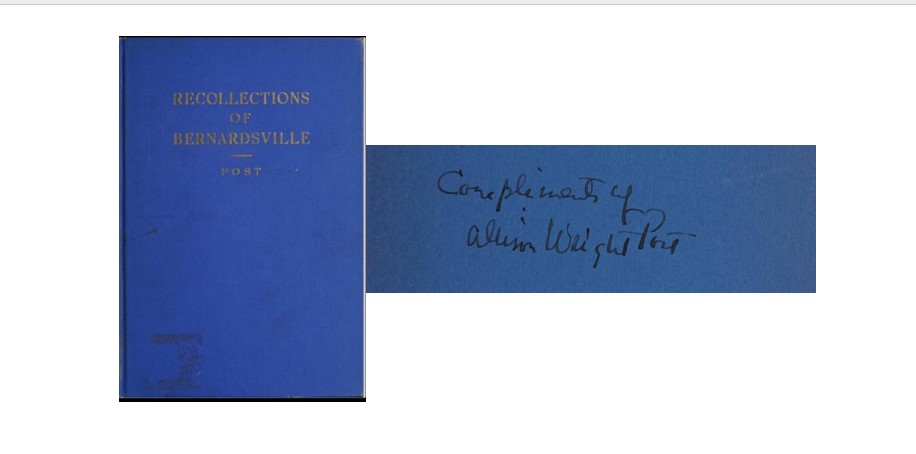 RECOLLECTIONS
OF
BERNARDSVILLE
POST
Compliments of
Allison Wright Post